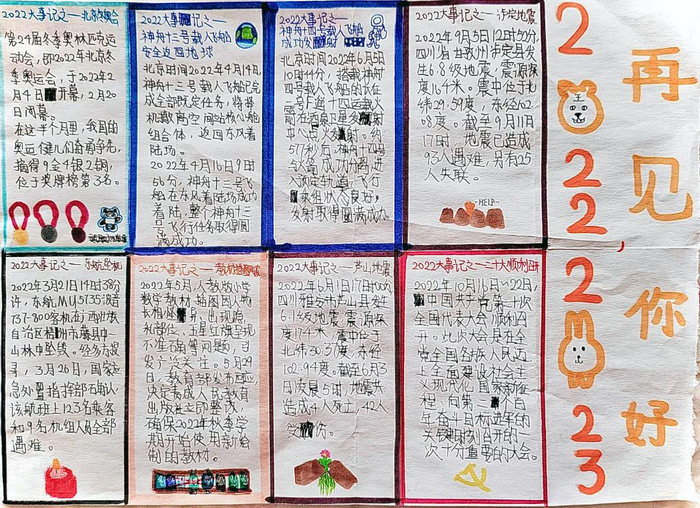 2022大事记之一北京冬奥会
第24届冬季奥林匹克运
动会,即2022年北京冬
季奥运会,于2022年2
月4日开幕,2月20
日闭幕。
在这半个月里,我国的
奥运健儿们奋勇争先,
摘得9金4银2铜,
位于奖牌榜第3名。
2022大事记之一
神舟十三号载人飞船
安全返回地球
北京时间2022年4月14日,
神舟十三号载人飞船已完
成全部既定任务,将择
机撤离空间站核心舱
组合体,返回东风着
陆场。
2022年4月16日9时
56分,神舟十三号飞
船在东风着陆场成功
着陆,整个神舟十三
飞行任务取得圆
满成功。
2022大事记之一
神舟十四号载人飞船
成功发射
北京时间2022年6月5日
10时44分,搭载神舟
四号载人飞船的长征
二号F遥十四运载火
箭在酒泉卫星发射
中心点火发射,约
577秒后,神舟十四号
与火箭成功分离,进
入预定轨道,飞行
乘组状态良好,
发射取得圆满成功。
2022大事记之一泸定地震
2022年9月5日12时52分,
四川省甘孜州泸定县发
生6.8级地震,震源深
度16千米。震中位于北
纬29.59度,东经102.
08度。截至9月11日
17时,地震已造成
93人遇难,另有25
人失联。
HELP...
2022大事记之一东航坠机
2022年3月21日14时38分
许,东航MU5735波音
737-800客机在广西壮族
自治区梧州市藤县中
山林中坠毁。经多方搜
寻,3月26日,国家应
急处置指挥部确认
该航班上123名乘客
和9名机组人员全部
遇难。
2022大事记之一教材插图
2022年5月,人教版小学
数学教材插图因人物
长相,出现隐
私部位、五星红旗呈现
不准确等问题,引
发广泛关注。5月29
日,教育部发布回应,
决定责成人民教育
出版社立即整改,
确保2022年秋季学
期开始使用新绘
制的教材。
2022大事记之一芦山地震
2022年6月1日17时00分
四川雅安市芦山县发生
6.1级地震,震源深
度17千米,震中位于
北纬30.37度,东经
102.94度。截至6月3
日凌晨5时,地震共
造成4人死亡,42人
受伤。
2022大事记之一二十大顺利召开
2022年10月16日~22日,
中国共产党第二十次
全国代表大会顺利召
开。此次大会是在全
党全国各族人民迈
上全面建设社会主
义现代化国家新征
程、向第二个百
年奋斗目标进军的
关键时刻召开的一
次十分重要的大会。
2
王
2
2
2
2
3
再见
你好